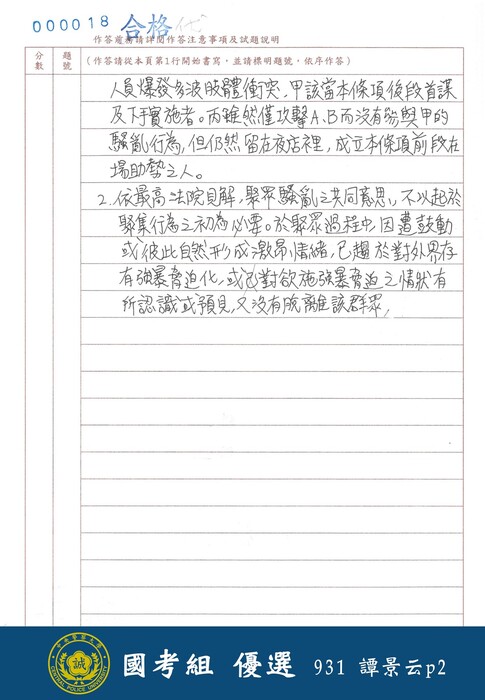 000018 合格
作答前務請詳閱作答注意事項及試題說明
分數 題號 (作答請從本頁第1行開始書寫,並請標明題號,依序作答)
人員爆發多波肢體衝突,甲該當本條項後段首謀
及下手實施者。丙雖然僅攻擊A、B而沒有參與甲的
騷亂行為,但仍然留在夜店裡,成立本條項前段在
場助勢之人。
2.依最高法院見解,聚眾騷亂之共同意思,不以起於
聚集行為之初為必要。於聚眾過程中,因遭鼓動
或彼此自然形成激昂情緒,已趨於對外界存
有強暴脅迫化,或已對欲施強暴脅迫之情狀有
所認識或預見,又沒有脫離該群眾,
中央警察大學
誠
CENTRAL POLICE UNIVERSITY
國考組 優選 931 譚景云p2